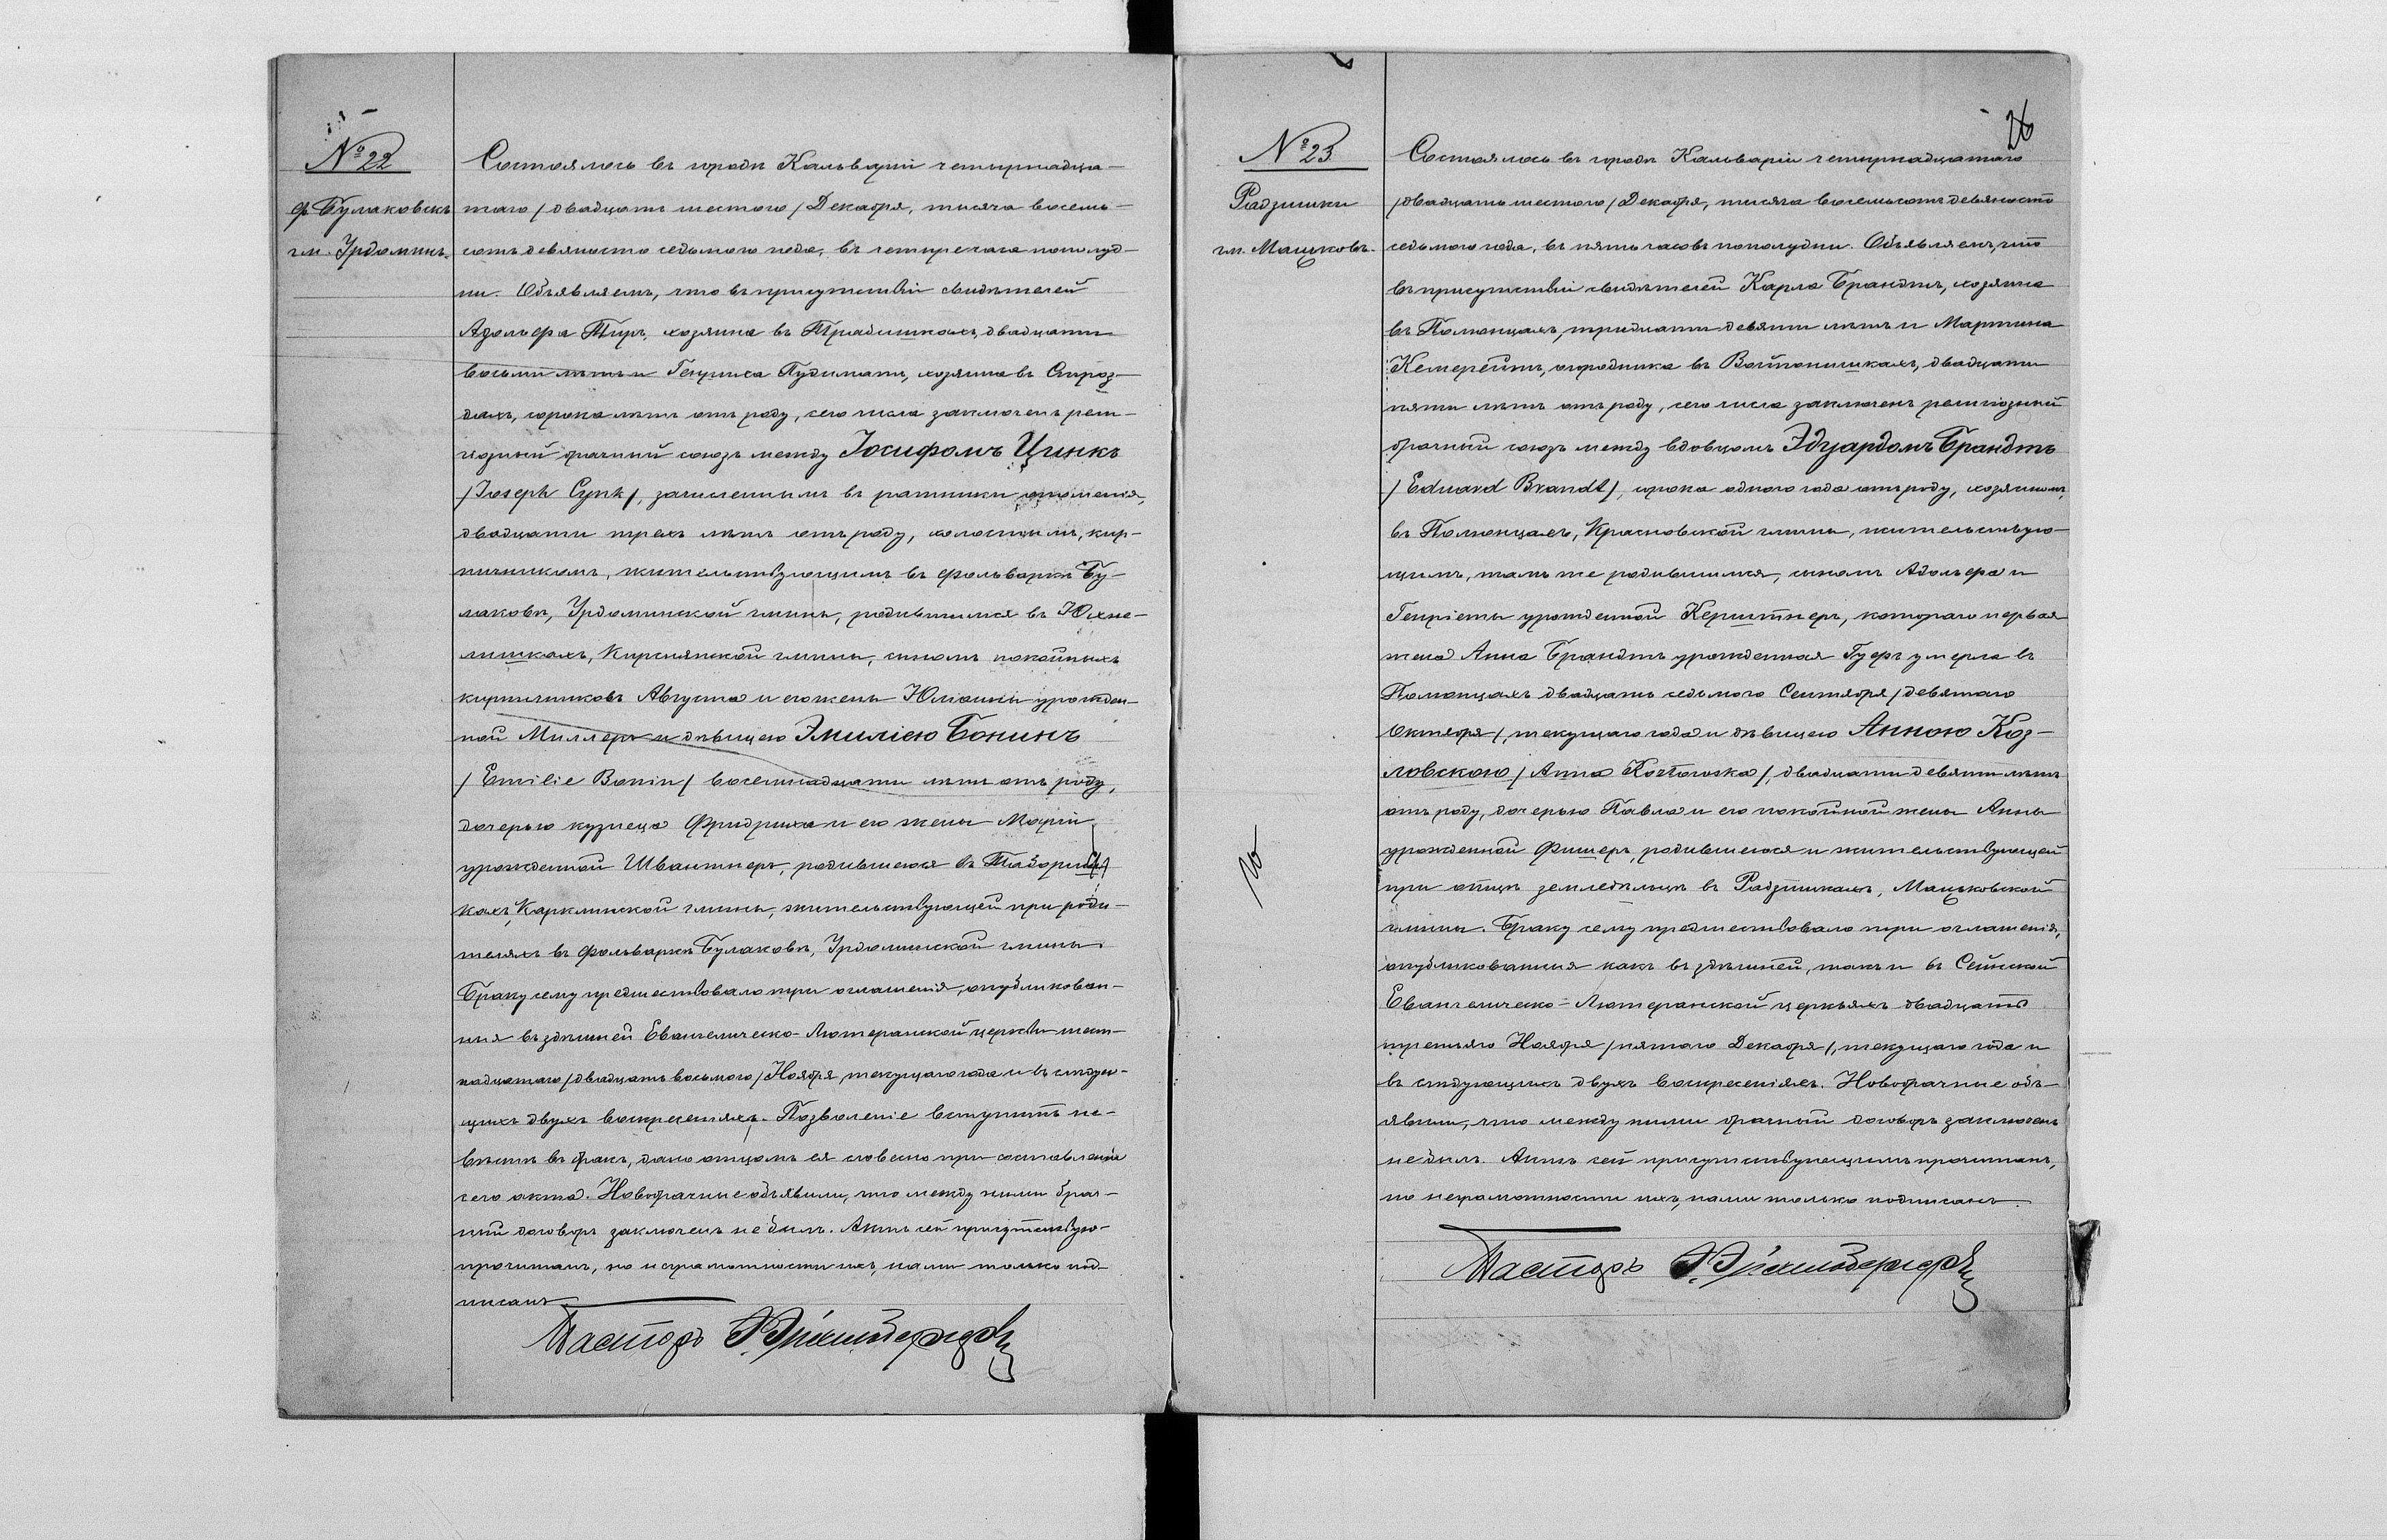 № 22
ф. Булаковскъ
гм. Урдоминъ.
Состоялось въ городѣ Кальваріи четырнадца-
таго /двадцать шестого/ Декабря, тысяча восемь-
сотъ девяносто седьмого года, въ четыре часа пополуд-
ни. Объявляемъ, что въ присутствіи свидѣтелей
Адольфа Тиръ, хозяина въ Традишкахъ, двадцати
восьми лѣтъ и Генриха Пудиматъ, хозяина въ
дахъ, сорока лѣтъ отъ роду, сего числа заключенъ рели-
гіозный брачный союзъ между Іосифомъ Цинкъ
/Joseph Cynk/, зачисленнымъ въ ратники ополченія,
двадцати трехъ лѣтъ отъ роду, холостымъ, кир-
пичникомъ, жительствующимъ въ фольваркѣ Бу-
лаковѣ, Урдоминской гмины, родившимся въ Юхне-
лишкахъ, Кирснянской гмины, сыномъ покойныхъ
кирпичниковъ Августа и его жены Юліанны урожден-
ной Миллеръ и дѣвицею Эмиліею Бонинъ
/Emilie Bonin/ восемнадцати лѣтъ отъ роду,
дочерью кузнеца Фридриха и его жены Маріи
урожденной Швантнеръ, родившеюся въ
кахъ, Карклинской гмины, жительствующей при роди-
теляхъ въ фольваркѣ Булаковѣ, Урдоминской гмины.
Браку сему предшествовало три оглашенія, опубликован-
ныя въ здѣшней Евангелическо-Лютеранской церкви шест-
надцатаго /двадцать восьмого/ Ноября, текущаго года и въ слѣдую-
щихъ двухъ воскресеніяхъ. Позволеніе вступить не-
вѣстѣ въ бракъ, дано отцомъ ея словесно при составленіи
сего акта. Новобрачные объявили, что между ними брач-
ный договоръ заключенъ не былъ. Актъ сей присутствую-
прочитанъ, по неграмотности ихъ, нами только под-
писанъ
Пасторъ
26
№ 23
Радзишки
гм. Мацковъ.
Состоялось въ городѣ Кальваріи четырнадцатаго
/двадцать шестого/ Декабря, тысяча восемьсотъ девяносто
седьмого года, въ пять часовъ пополудни. Объявляемъ, что
въ присутствіи свидѣтелей Карла Брандтъ, хозяина
въ Полюнцахъ, тридцати девяти лѣтъ и Мартина
Кемерейтъ, огородника въ Войтокишкахъ, двадцати
пяти лѣтъ отъ роду, сего числа заключенъ религіозный
брачный союзъ между вдовцомъ Эдуардомъ Брандтъ
/Eduard Brandt/, сорока одного года отъ роду, хозяиномъ,
въ Полюнцахъ, Красновской гмины, жительствую-
щимъ, тамъ же родившимся, сыномъ Адольфа и
Генріеты урожденной Керштнеръ, котораго первая
жена Анна Брандтъ урожденная Гуфъ умерла въ
Полюнцахъ двадцать седьмого Сентября /девятаго
Октября/, текущаго года и дѣвицею Анною Коз-
ловскою /Anna Kozłowska/, двадцати девяти лѣтъ
отъ роду, дочерью Павла и его покойной жены Анны
урожденной Фишеръ, родившеюся и жительствующей
при отцѣ земледѣльцѣ въ Радзишкахъ, Мацьковской
гмины. Браку сему предшествовало три оглашенія,
опубликованныя какъ въ здѣшней, такъ и въ Сейнской
Евангелическо-Лютеранской церквяхъ двадцать
третьяго Ноября /пятаго Декабря/, текущаго года и
въ слѣдующихъ двухъ воскресеніяхъ. Новобрачные объ-
явили, что между ними брачный договоръ заключенъ
не былъ. Актъ сей присутствующимъ прочитанъ,
по неграмотности ихъ, нами только подписанъ.
Пасторъ